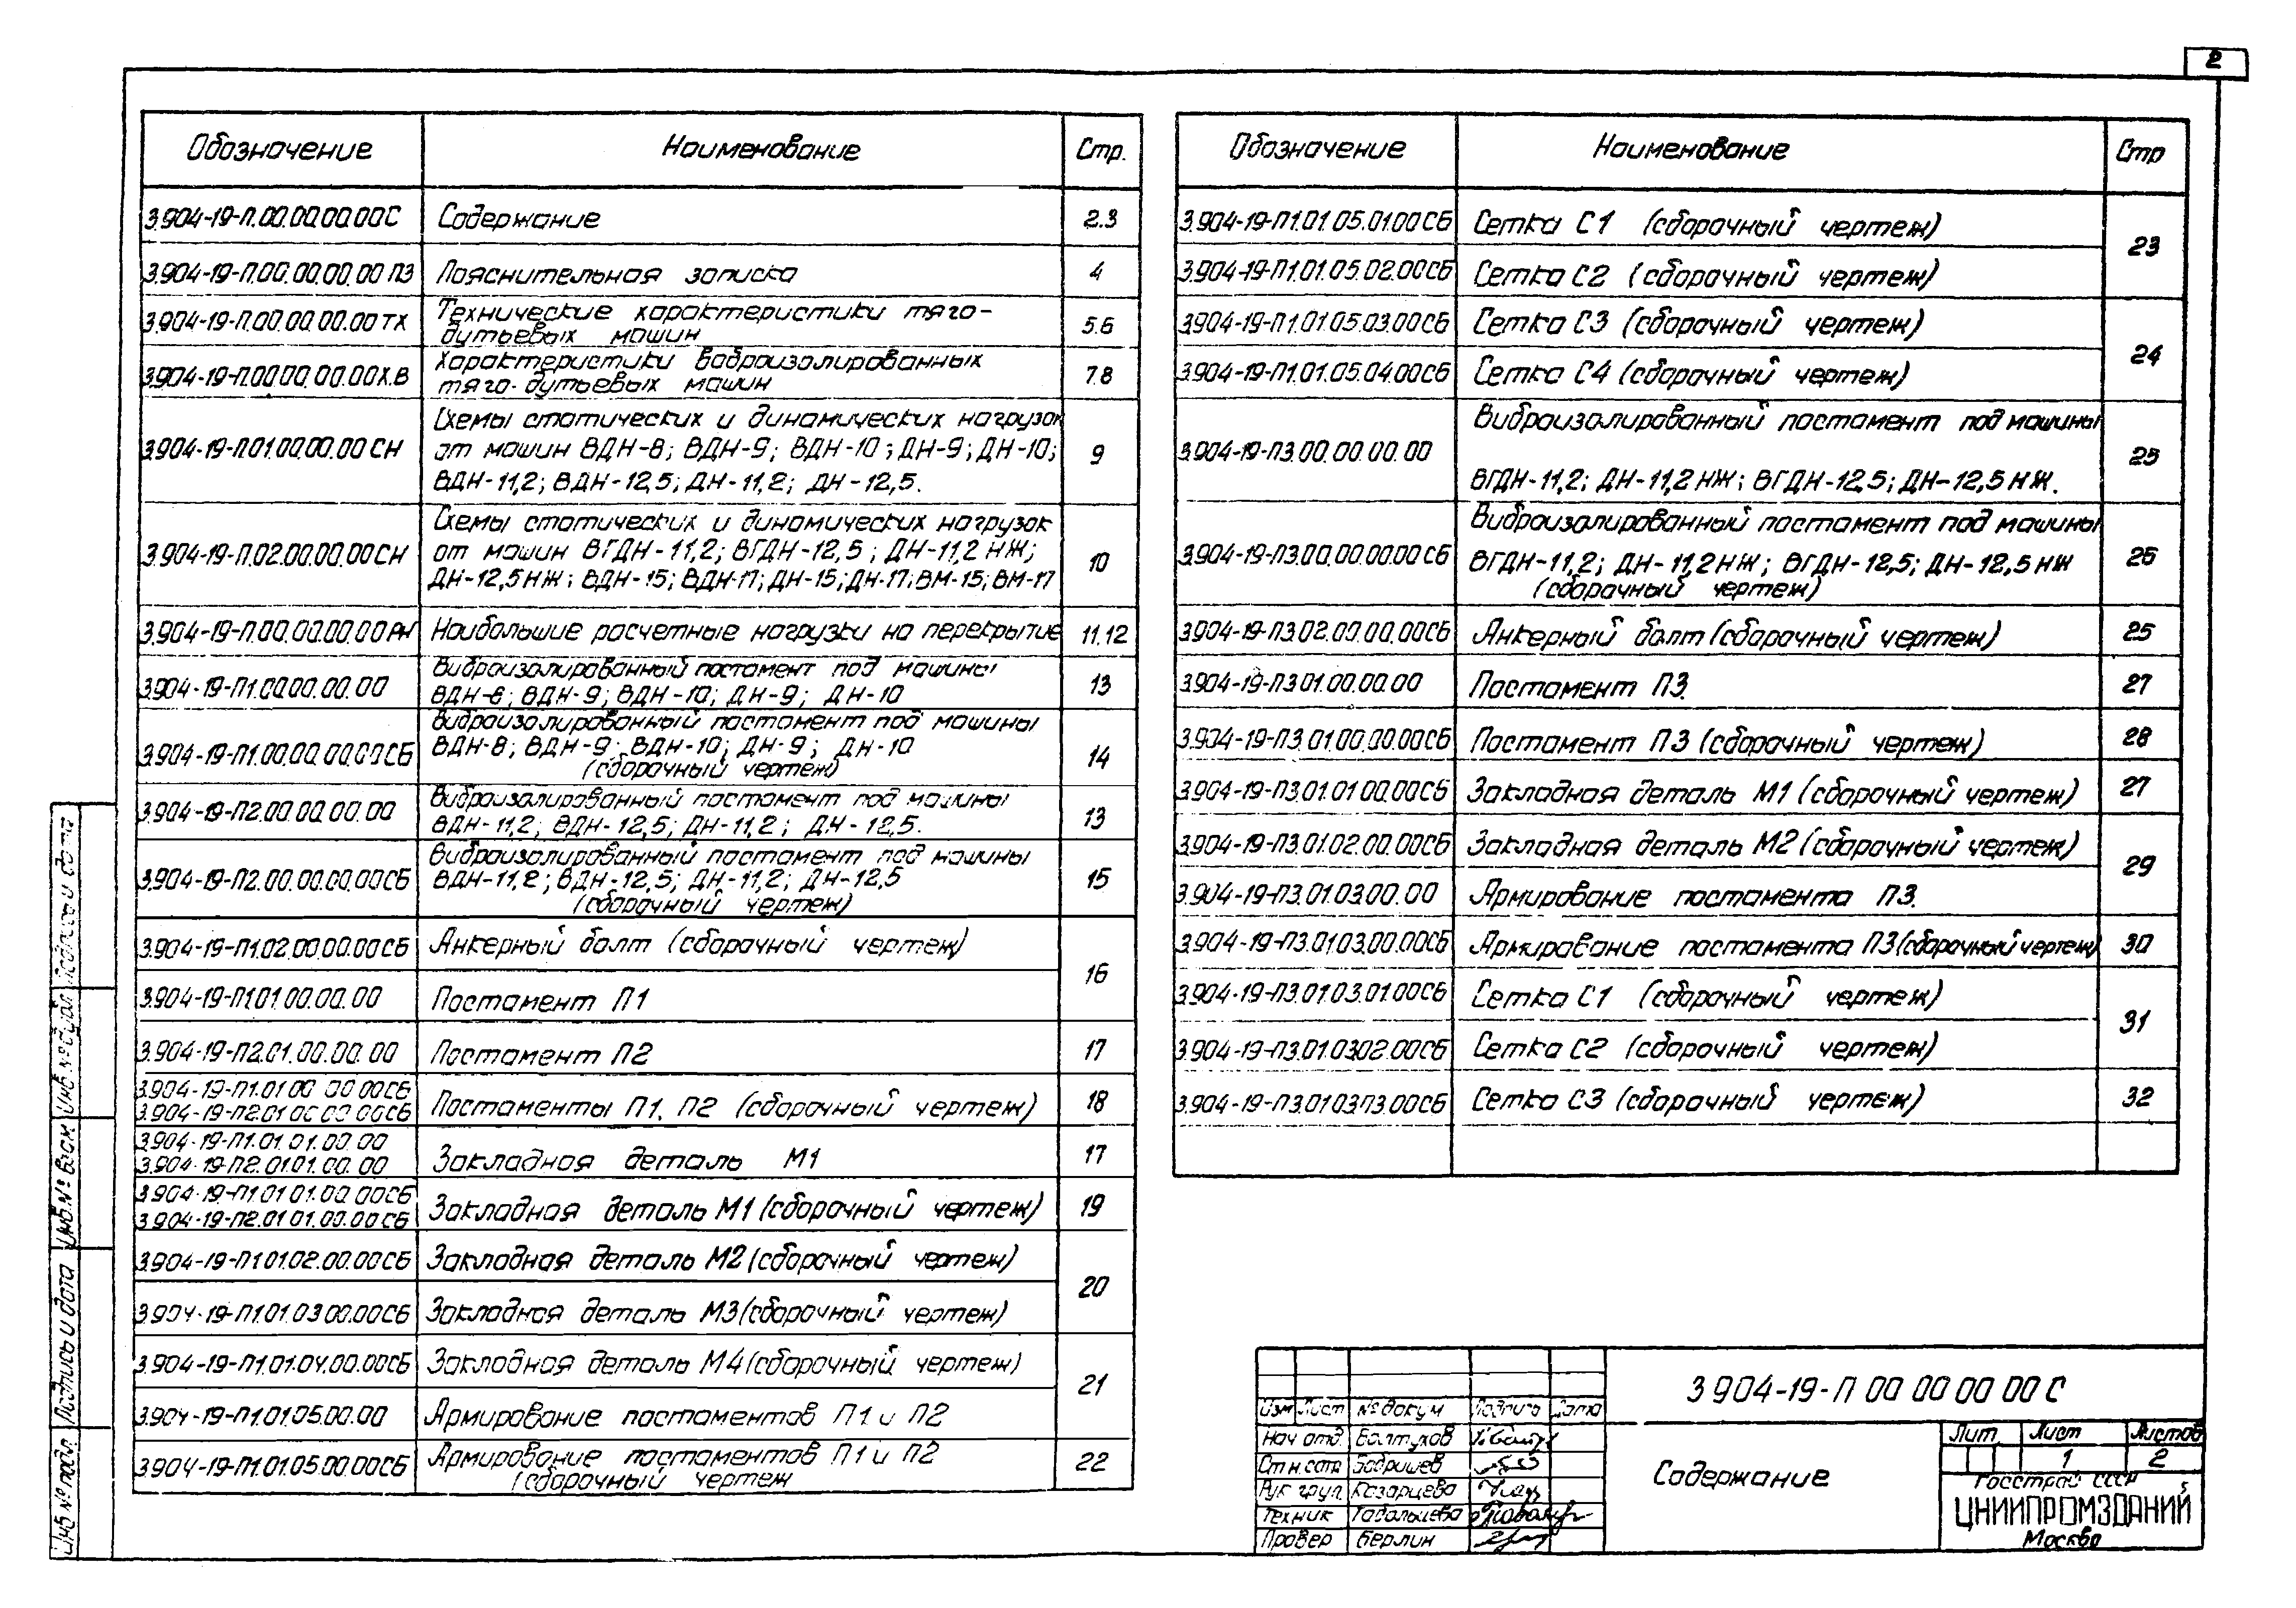 2
Обозначение
Наименование
Стр.
3.904-19-П.00.00.00.00С
Содержание
2.3
3.904-19-П.00.00.00.00 ПЗ
Пояснительная записка
4
3.904-19-П.00.00.00.00 ТХ
Технические характеристики тяго-
дутьевых машин
5.6
3.904-19-П.00.00.00.00Х.В
Характеристики виброизолированных
тяго-дутьевых машин
7.8
3.904-19-П.01.00.00.00 СН
Схемы статических и динамических нагрузок
от машин ВДН-8; ВДН-9; ВДН-10; ДН-9; ДН-10;
ВДН-11,2; ВДН-12,5; ДН-11,2; ДН-12,5.
9
3.904-19-П.02.00.00.00 СН
Схемы статических и динамических нагрузок
от машин ВГДН-11,2; ВГДН-12,5; ДН-11,2 НЖ;
ДН-12,5 НЖ; ВДН-15; ВДН-17; ДН-15; ДН-17; ВМ-15; ВМ-17
10
3.904-19-П.00.00.00.00 РН
Наибольшие расчетные нагрузки на перекрытие
11.12
3.904-19-П1.00.00.00.00
Виброизолированный постамент под машины
ВДН-8; ВДН-9; ВДН-10; ДН-9; ДН-10
13
3.904-19-П1.00.00.00.00СБ
Виброизолированный постамент под машины
ВДН-8; ВДН-9; ВДН-10; ДН-9; ДН-10
(сборочный чертеж)
14
3.904-19-П2.00.00.00.00
Виброизолированный постамент под машины
ВДН-11,2; ВДН-12,5; ДН-11,2; ДН-12,5.
13
3.904-19-П2.00.00.00.00СБ
Виброизолированный постамент под машины
ВДН-11,2; ВДН-12,5; ДН-11,2; ДН-12,5
(сборочный чертеж)
15
3.904-19-П1.02.00.00.00СБ
Анкерный болт (сборочный чертеж)
16
3.904-19-П1.01.00.00.00
Постамент П1
3.904-19-П2.01.00.00.00
Постамент П2
17
3.904-19-П1.01.00.00.00СБ
3.904-19-П2.01.00.00.00СБ
Постаменты П1, П2 (сборочный чертеж)
18
3.904-19-П1.01.01.00.00
3.904-19-П2.01.01.00.00
Закладная деталь М1
17
3.904-19-П1.01.01.00.00СБ
3.904-19-П2.01.01.00.00СБ
Закладная деталь М1 (сборочный чертеж)
19
3.904-19-П1.01.02.00.00СБ
Закладная деталь М2 (сборочный чертеж)
20
3.904-19-П1.01.03.00.00СБ
Закладная деталь М3 (сборочный чертеж)
3.904-19-П1.01.04.00.00СБ
Закладная деталь М4 (сборочный чертеж)
21
3.904-19-П1.01.05.00.00
Армирование постаментов П1 и П2
3.904-19-П1.01.05.00.00СБ
Армирование постаментов П1 и П2
(сборочный чертеж
22
Обозначение
Наименование
Стр
3.904-19-П1.01.05.01.00СБ
Сетка С1 (сборочный чертеж)
23
3.904-19-П1.01.05.02.00СБ
Сетка С2 (сборочный чертеж)
3.904-19-П1.01.05.03.00СБ
Сетка С3 (сборочный чертеж)
24
3.904-19-П1.01.05.04.00СБ
Сетка С4 (сборочный чертеж)
3.904-19-П3.00.00.00.00
Виброизолированный постамент под машины
ВГДН-11,2; ДН-11,2 НЖ; ВГДН-12,5; ДН-12,5 НЖ.
25
3.904-19-П3.00.00.00.00СБ
Виброизолированный постамент под машины
ВГДН-11,2; ДН-11,2 НЖ; ВГДН-12,5; ДН-12,5 НЖ
(сборочный чертеж)
26
3.904-19-П3.02.00.00.00СБ
Анкерный болт (сборочный чертеж)
25
3.904-19-П3.01.00.00.00
Постамент П3.
27
3.904-19-П3.01.00.00.00СБ
Постамент П3 (сборочный чертеж)
28
3.904-19-П3.01.01.00.00СБ
Закладная деталь М1 (сборочный чертеж)
27
3.904-19-П3.01.02.00.00СБ
Закладная деталь М2 (сборочный чертеж)
29
3.904-19-П3.01.03.00.00
Армирование постамента П3.
3.904-19-П3.01.03.00.00СБ
Армирование постамента П3 (сборочный чертеж)
30
3.904-19-П3.01.03.01.00СБ
Сетка С1 (сборочный чертеж)
31
3.904-19-П3.01.03.02.00СБ
Сетка С2 (сборочный чертеж)
3.904-19-П3.01.03.П3.00СБ
Сетка С3 (сборочный чертеж)
32
Инв № подл. Подпись и дата Инв. № Взам Инв. № дубл. Подпись и дата
3 904-19-П 00 00 00 00 С
Изм Лист № докум Подпись Дата
Нач отд. Болтухов
Ст н. сотр Бобришев
Рук груп. Казарцева
Техник
Провер Берлин
Содержание
Лит. Лист Листов
1 2
Госстрой СССР
ЦНИИПРОМЗДАНИЙ
Москва